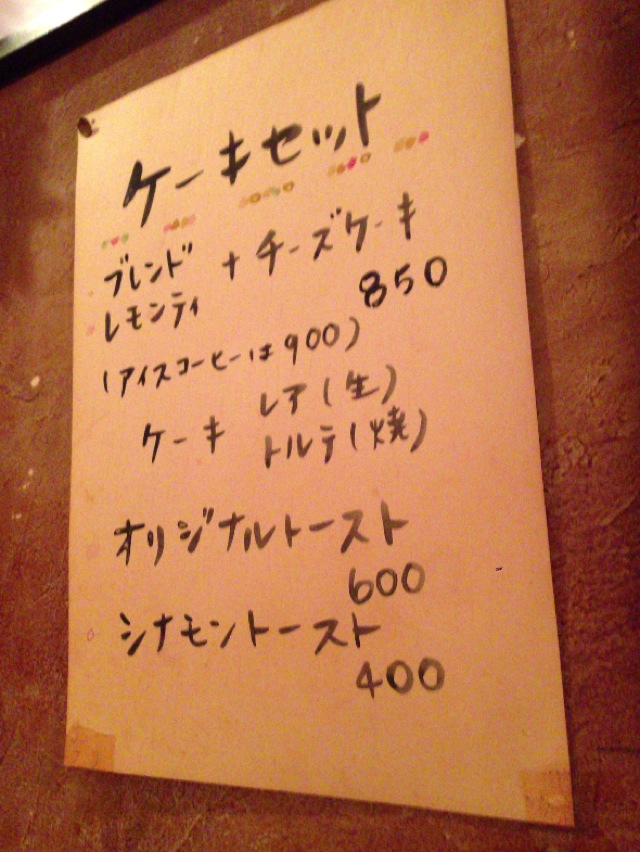 ケーキセット
ブレンド + チーズケーキ
レモンティ 850
(アイスコーヒーは900)
ケーキ レア(生)
トルテ(焼)
オリジナルトースト
600
シナモントースト
400